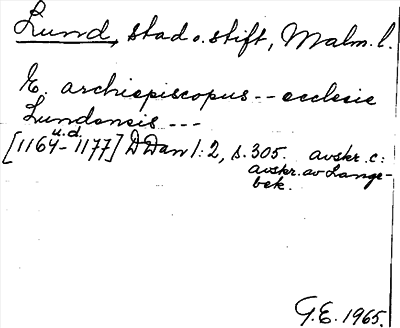 Lund, stad o. stift, Malm. l.
E. archiepiscopus -- ecclesie
Lundensis ---
u.d.
[1164-1177] DDan 1:2, s. 305. avskr. c:
avskr. av Lange-
bek.
G.E. 1965.